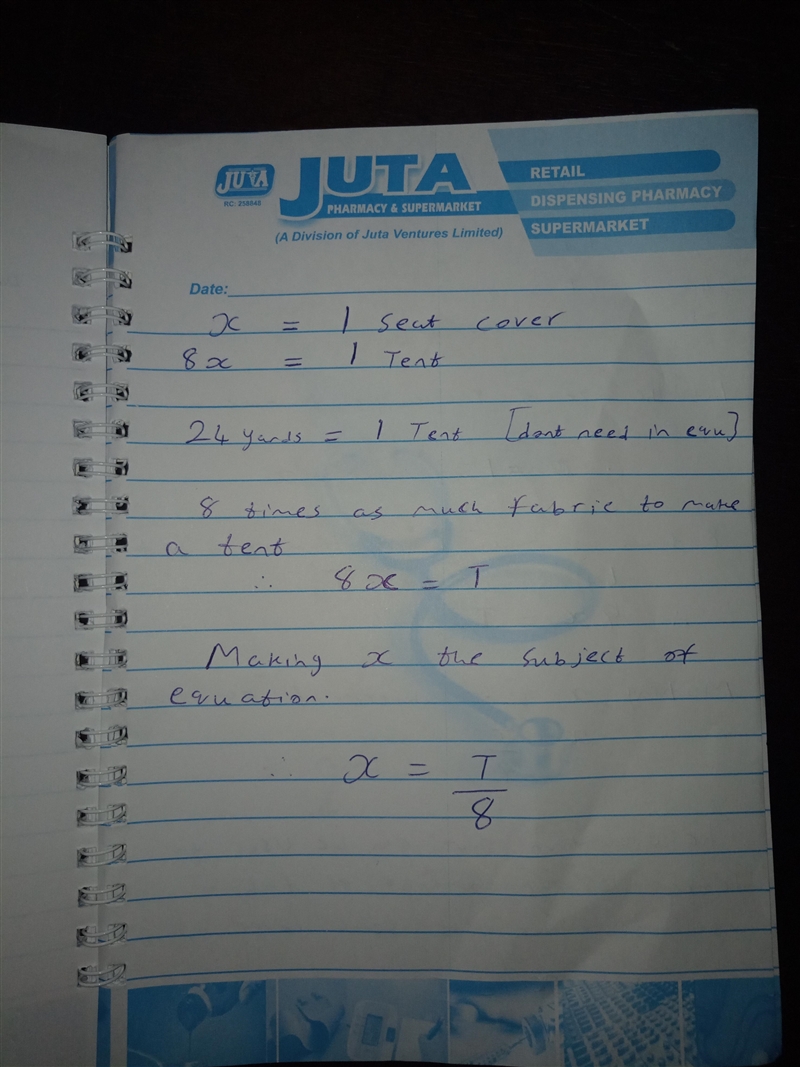 JUTA
RC: 258848
JUTA
PHARMACY & SUPERMARKET
(A Division of Juta Ventures Limited)
RETAIL
DISPENSING PHARMACY
SUPERMARKET
Date:
x = 1 Seat cover
8x = 1 Tent
24 yards = 1 Tent [dont need in equ]
8 times as much fabric to make
a tent
∴ 8x = T
Making x the subject of
equation.
∴ x = T/8